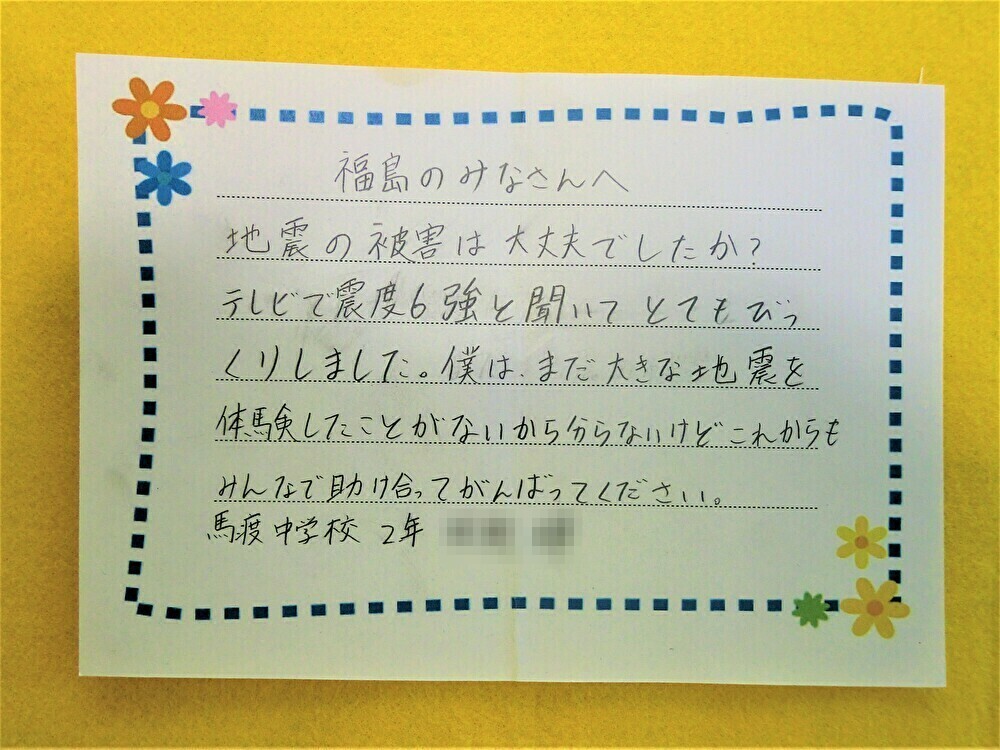 福島のみなさんへ
地震の被害は大丈夫でしたか?
テレビで震度6強と聞いてとてもびっ
くりしました。僕は、まだ大きな地震を
体験したことがないから分らないけどこれからも
みんなで助け合ってがんばってください。
馬渡中学校 2年